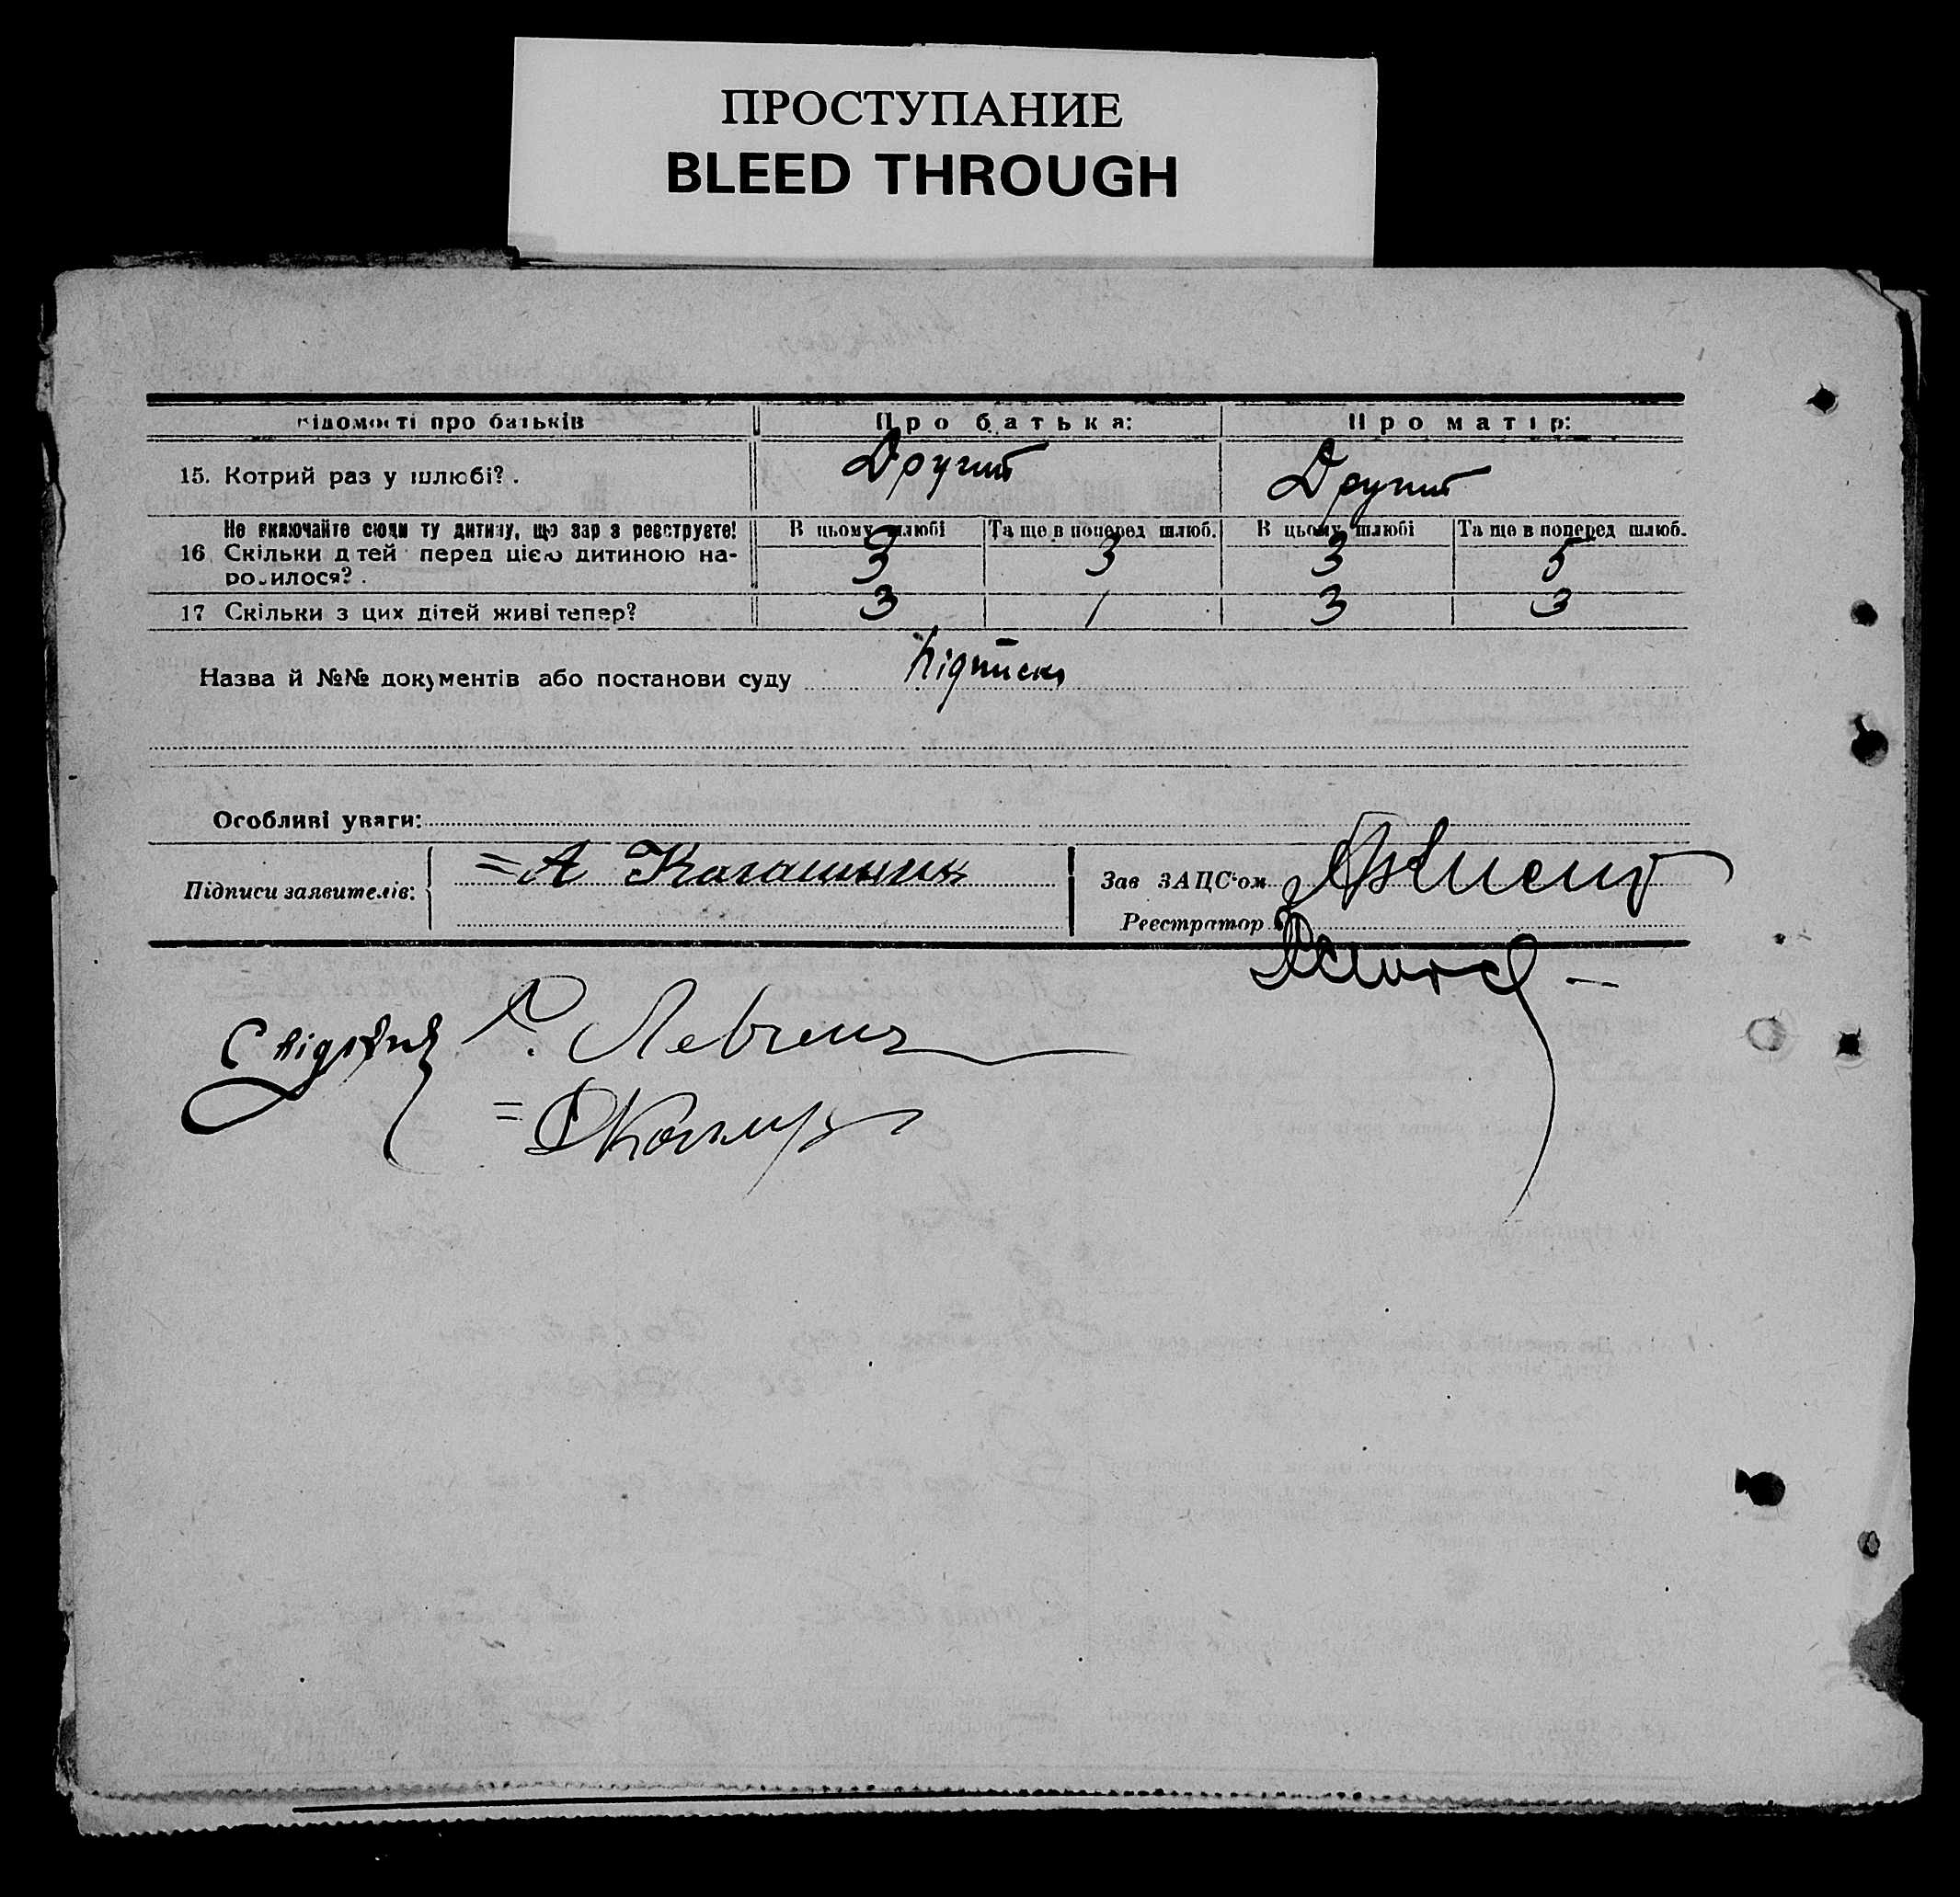 ПРОСТУПАНИЕ
BLEED THROUGH
відомості про батьків Про батька: Про матір:
15. Котрий раз у шлюбі? . Другий Другий
Не включайте сюди ту дитину, що зар з реєструєте! В цьому шлюбі Та ще в поперед шлюб. В цьому шлюбі Та ще в поперед шлюб.
16 Скільки дтей перед цією дитиною на-
родилося? . 3 3 3 5
17 Скільки з цих дітей живі тепер? 3 1 3 3
Назва й №№ документів або постанови суду Підписка
Особливі уваги:
Підписи заявителів: = А Зав ЗАЦС'ом
Реєстратор
Свідки
=